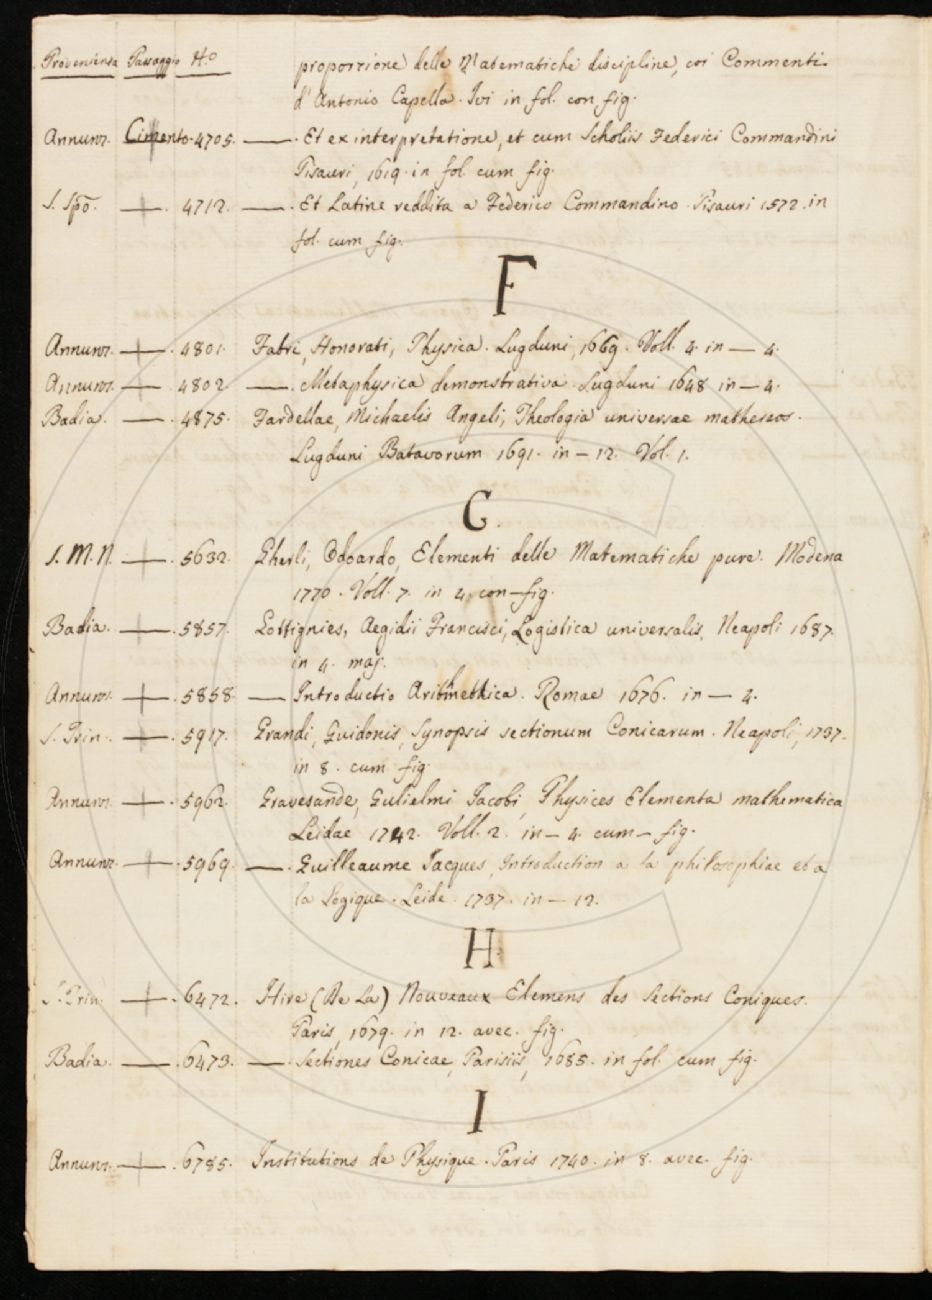 Provenienza Passaggio N.o proporzione delle Matematiche discipline, coi Commenti
d'Antonio Capella. Ivi in fol. con fig.
Annunz. Cimento. 4705. —— . Et ex interpretatione, et cum Scholiis Federici Commandini
Pisauri, 1619. in fol. cum fig.
S. Spo. —+— . 4712. —— . Et Latine reddita a Federico Commandino. Pisauri 1572. in
fol. cum fig.
F
Annunz. —+— . 4801. Fabri, Honorati, Physica. Lugduni, 1669. Voll. 4. in — 4.
Annunz. —+— . 4802. —— . Metaphysica demonstrativa. Lugduni 1648 in — 4.
Badia. —— . 4875. Fardellae, Michaelis Angeli, Theologia universae matheseos.
Lugduni Batavorum 1691. in — 12. Vol. 1.
G.
S. M. N. —+— . 5632. Gherli, Odoardo, Elementi delle Matematiche pure. Modena
1770. Voll. 7. in 4. con — fig.
Badia. —— . 5857. Gottignies, Aegidii Francisci, Logistica universalis, Neapoli 1687.
in 4. maj.
Annunz. —+— . 5858. —— Introductio Arithmethica. Romae 1676. in — 4.
S. Trin. —+— . 5917. Grandi, Guidonis, Synopsis sectionum Conicarum. Neapoli, 1737.
in 8. cum fig.
Annunz. —+— . 5962. Gravesande, Gulielmi Jacobi, Physices Elementa mathematica
Leidae 1742. Voll. 2. in — 4. cum — fig.
Annunz. —+— . 5969. —— . Guilleaume Jacques, Introduction a la philosophiae et a
la Logique. Leide. 1737. in — 12.
H.
S. Trin. —+— . 6472. Hire (De La) Nouveaux Elemens des Sections Coniques.
Paris, 1679. in 12. avec. fig.
Badia. —— . 6473. —— . Sectiones Conicae, Parisiis, 1685. in fol. cum fig.
I
Annunz. —+— . 6785. Institutions de Physique. Paris 1740. in 8. avec. fig.